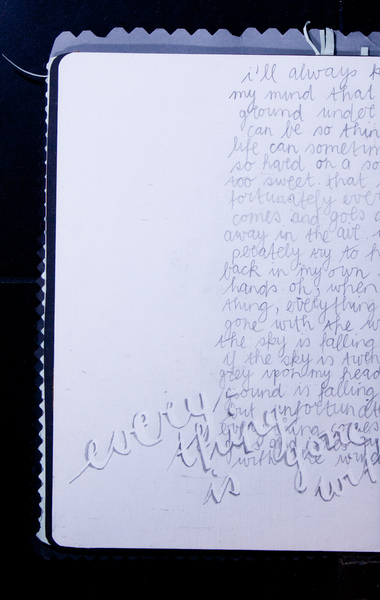 i'll always k
my mind that
ground under
can be so thin
life can sometim
so hard on a so
too sweet. that
fortunately ever
comes and goes a
away in the air.
perately try to h
back in my own
hands. oh, when
thing, everything
gone with the w
the sky is falling
if the sky is turn
grey upon my head
ground is falling
but unfortunat
everything comes
and goes
with the wind
every
thing gone
is wit